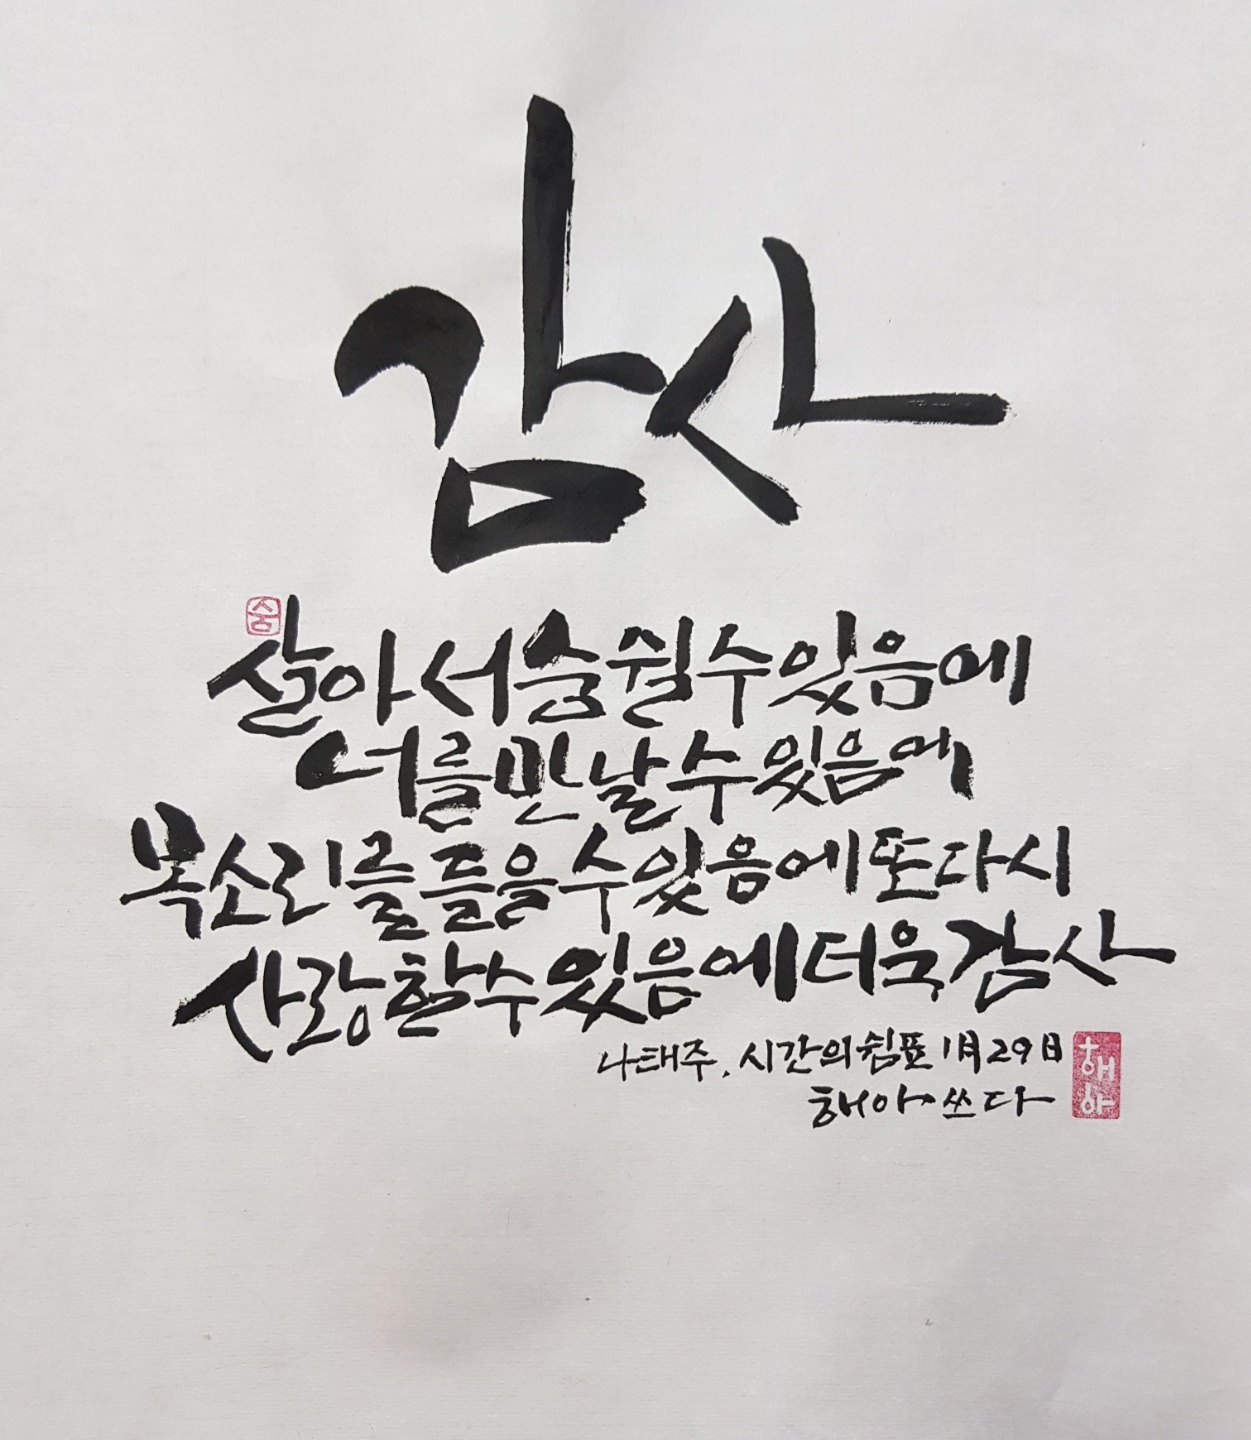 감사
숨
살아서 숨쉴 수 있음에
너를 만날 수 있음에
목소리를 들을 수 있음에 또다시
사랑할 수 있음에 더욱 감사
나태주, 시간의 쉼표 1月 29日
해아 쓰다
해아